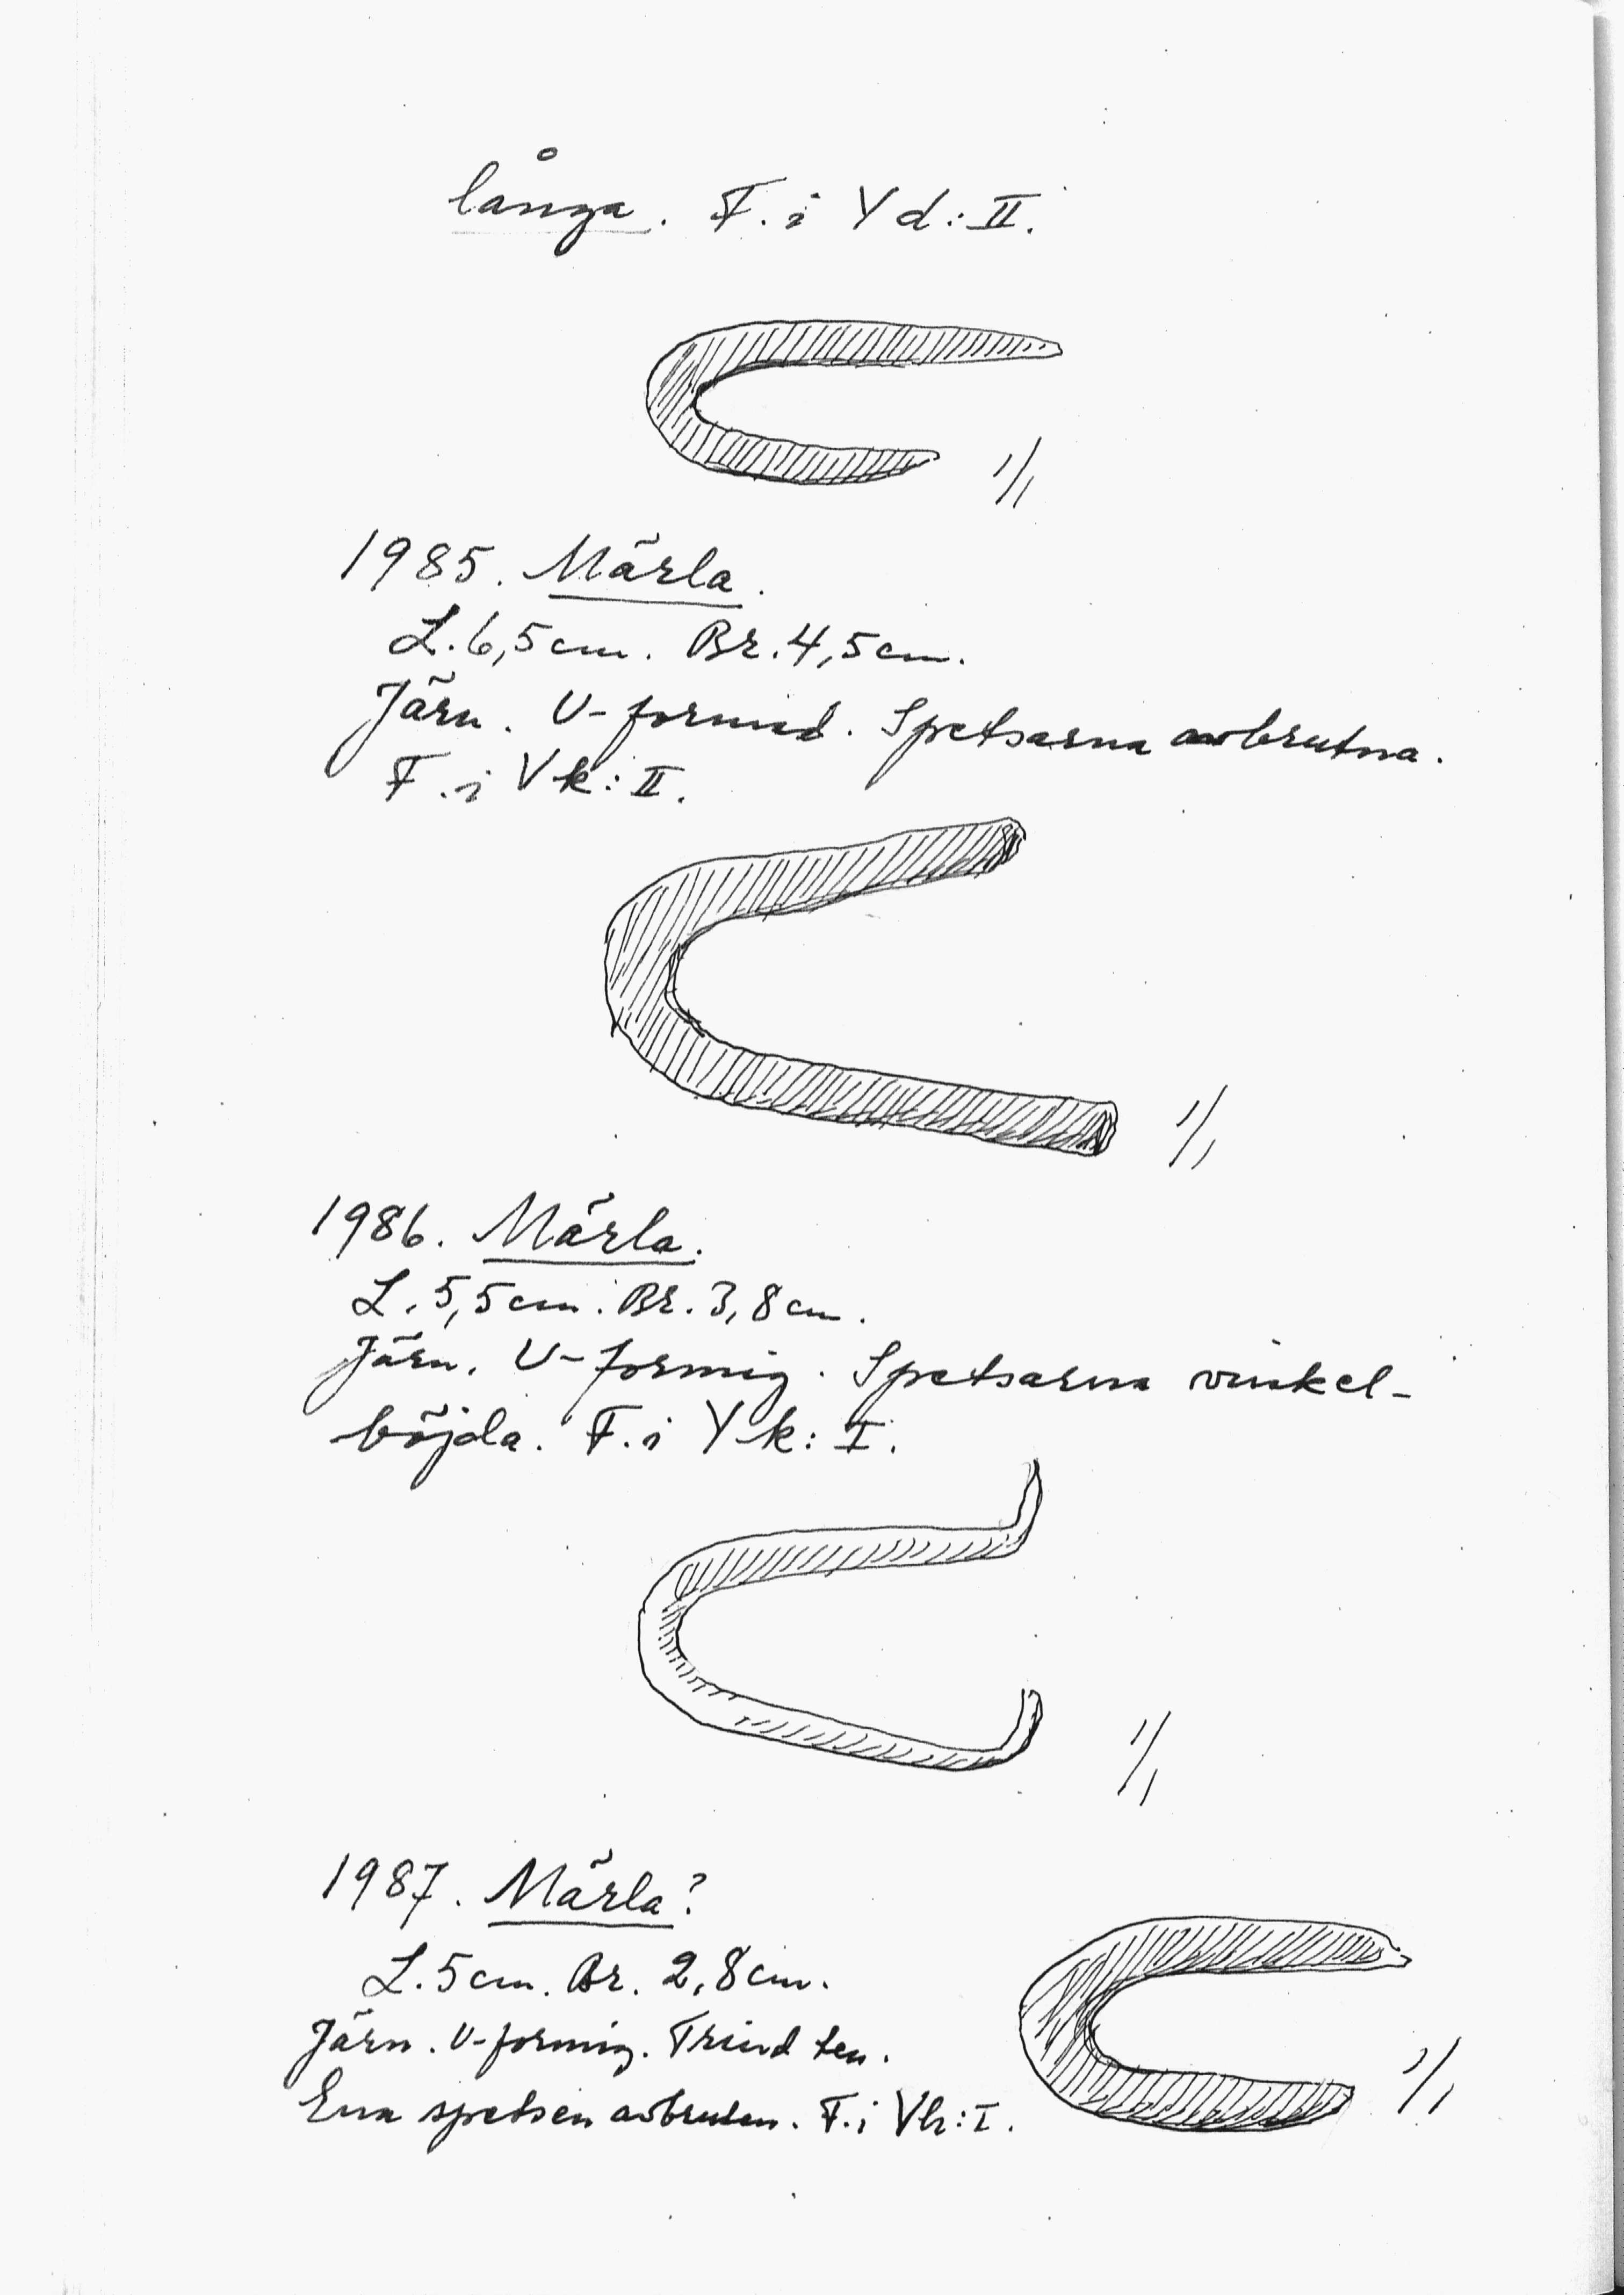 långa. F. i Yd: II.
1/1
1985. Märla.
L. 6,5 cm. Br. 4,5 cm.
Järn. U-formad. Spetsarna avbrutna.
F. i Vk: II.
1/1
1986. Märla.
L. 5,5 cm. Br. 3,8 cm.
Järn. U-formig. Spetsarna vinkel-
böjda. F. i Yk: I.
1/1
1987. Märla?
L. 5 cm. Br. 2,8 cm.
Järn. U-formig. Trind ten.
Ena spetsen avbruten. F. i Vh: I.
1/1